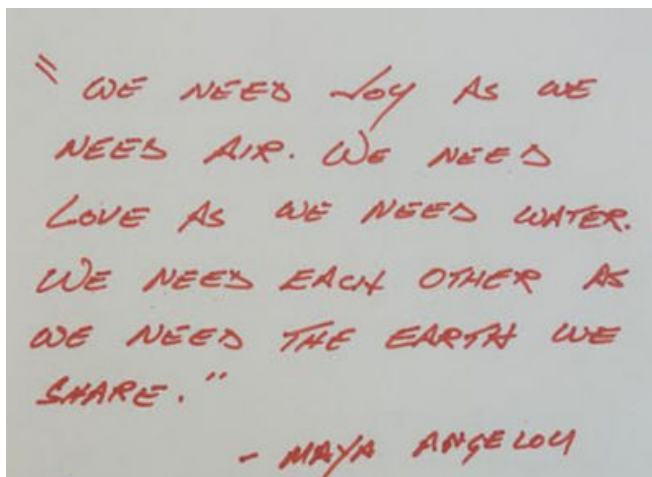 "WE NEED JOY AS WE
NEED AIR. WE NEED
LOVE AS WE NEED WATER.
WE NEED EACH OTHER AS
WE NEED THE EARTH WE
SHARE."
- MAYA ANGELOU